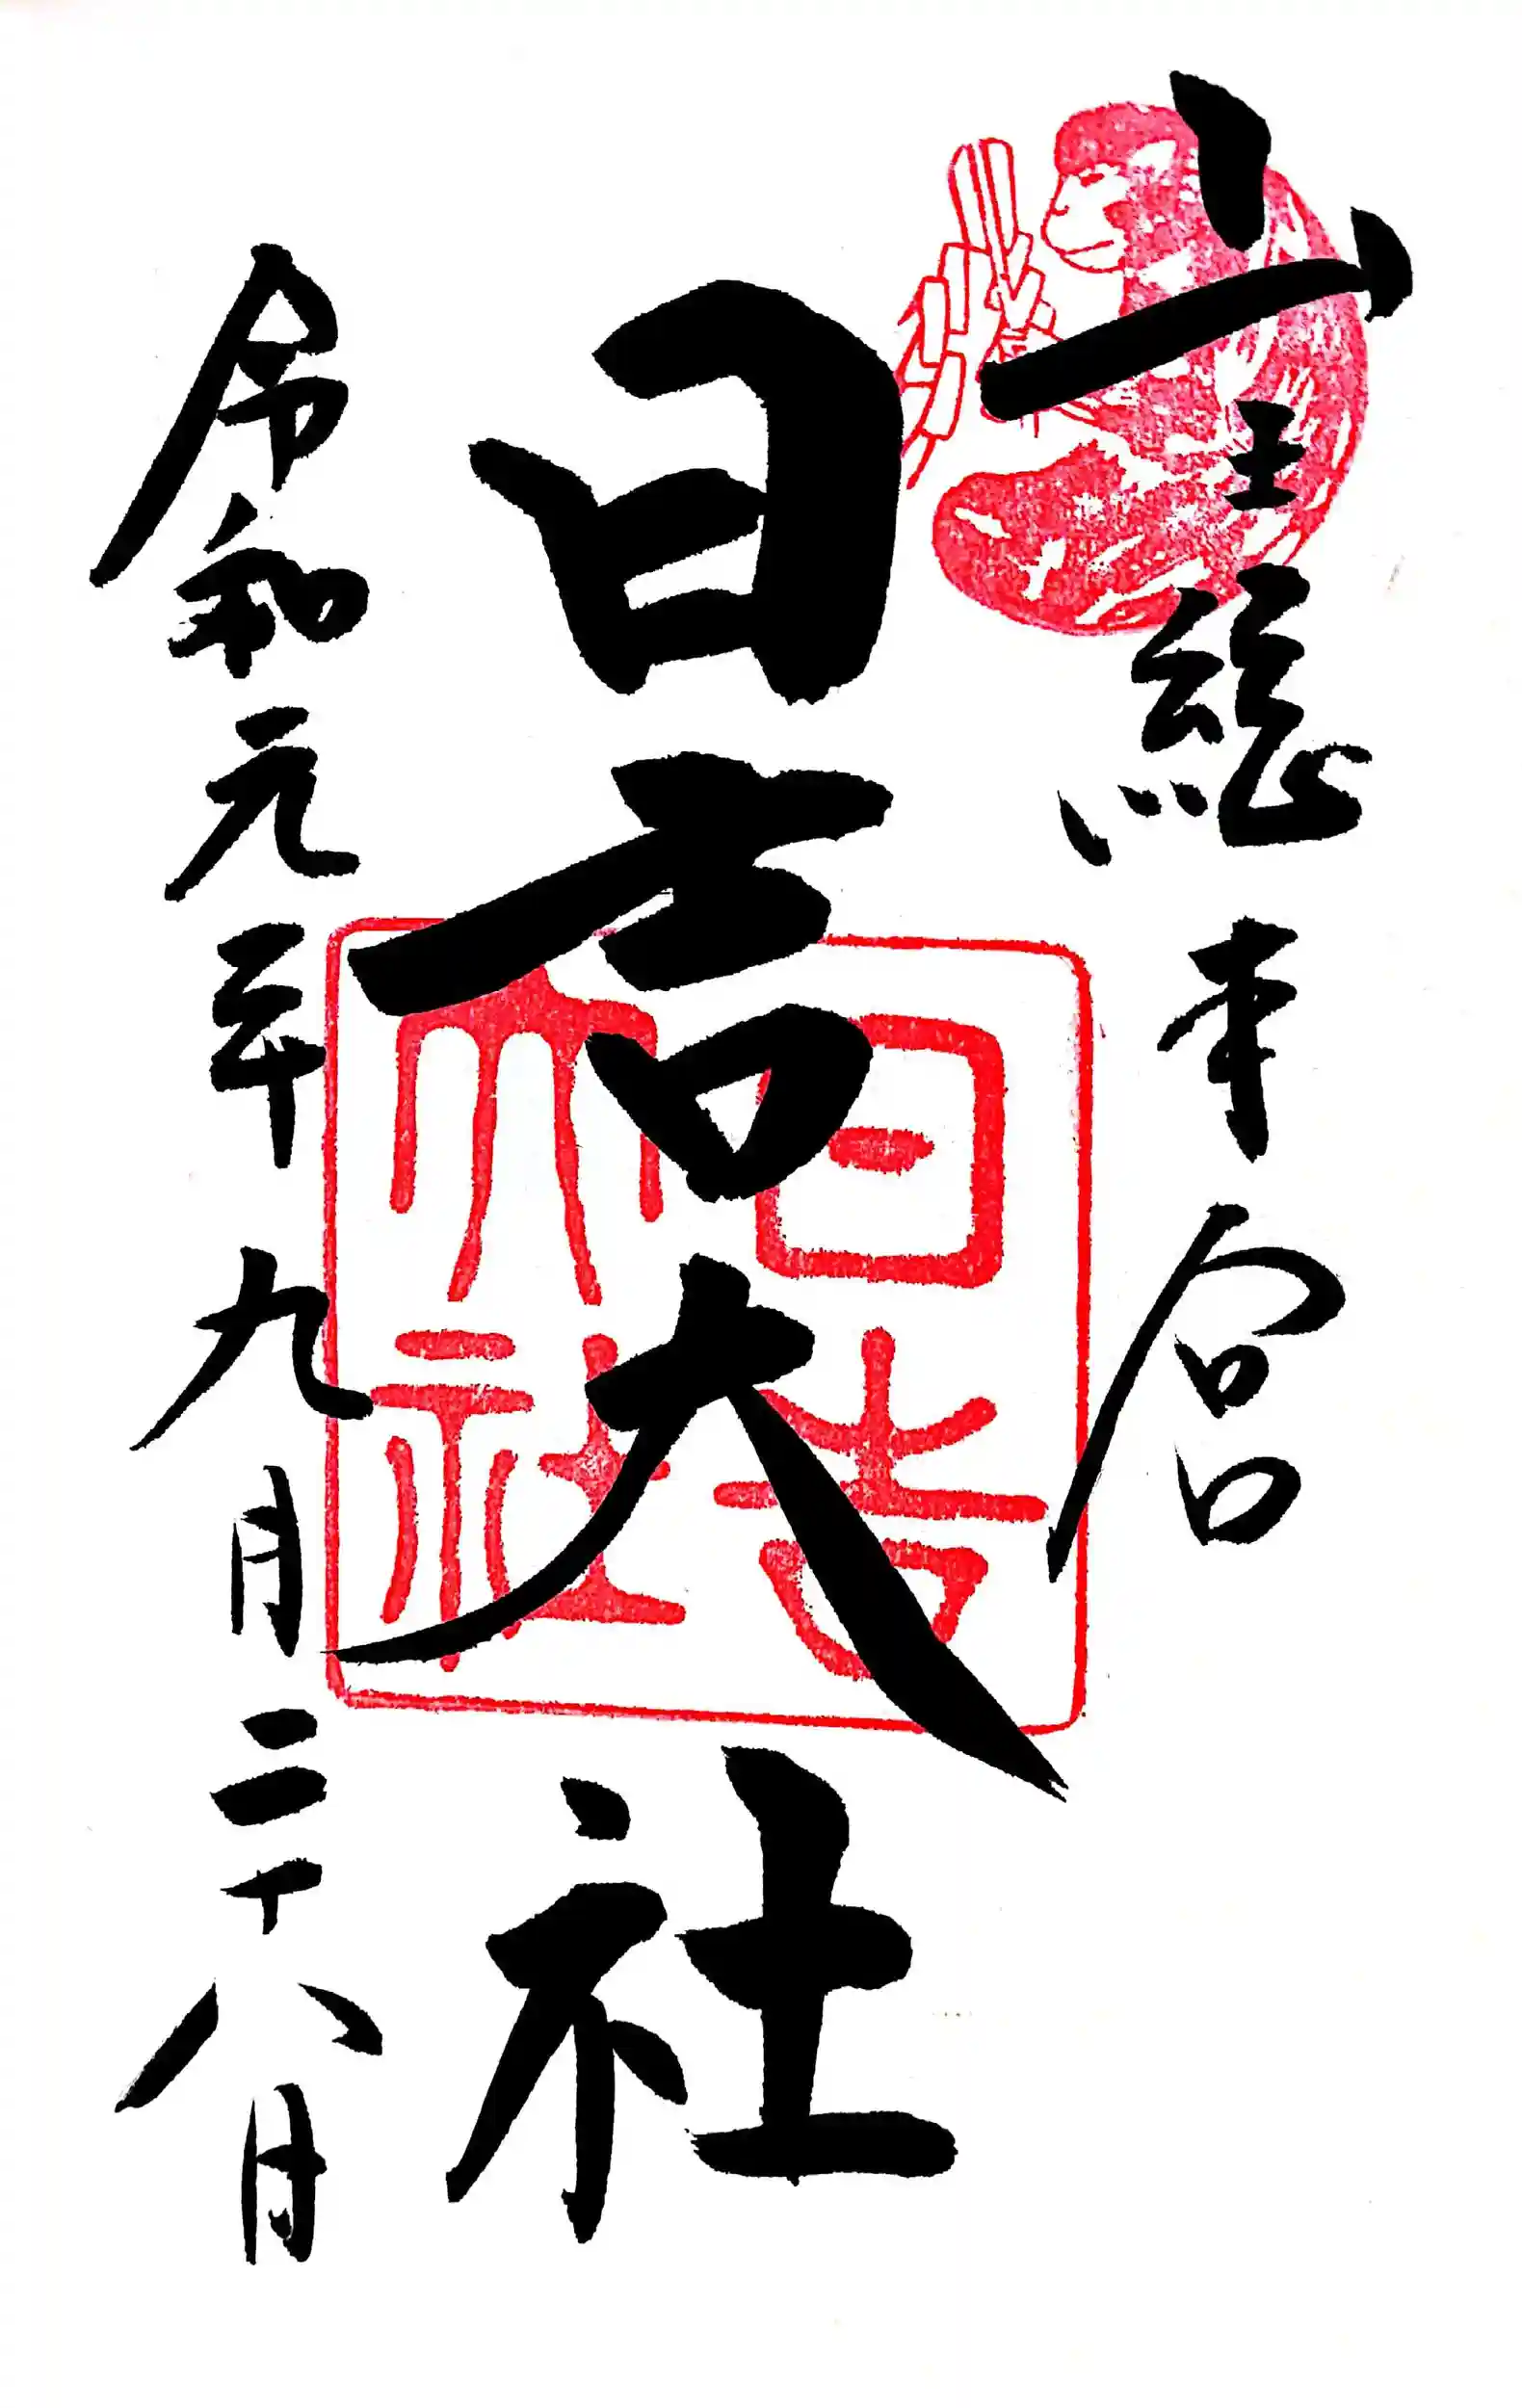 山王總本宮
日吉大社
日吉大社
令和元年九月二十八日